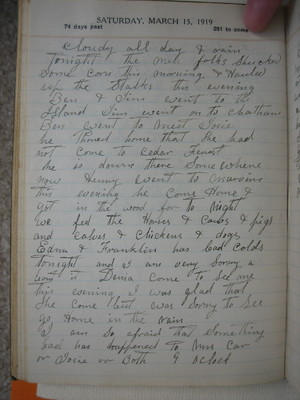 SATURDAY, MARCH 15, 1919
74 days past 291 to come
Cloudy all day & rain
Tonight the men folks shucked
Some corn this morning & Hauled
up the Stalks this evening
Ben & Jim went to the
Island Jim went on to Chatham
Ben went to meet Josie
he Phoned home that she had
not Come to Cedar Forest
she is down there Some where
now Henry went to
this evening he Come Home &
got in the wood for to Night
we fed the Horses & Cows & pigs
and calves & Chickens & dogs
Edna & Franklin has bad Colds
Tonight and I am very Sorry
Denia Come to See me
this evening I was glad that
She Come but was Sorry to See
go Home in the rain
I am So afraid that something
bad has happened to Mrs Car
or Josie or Both 9 oclock